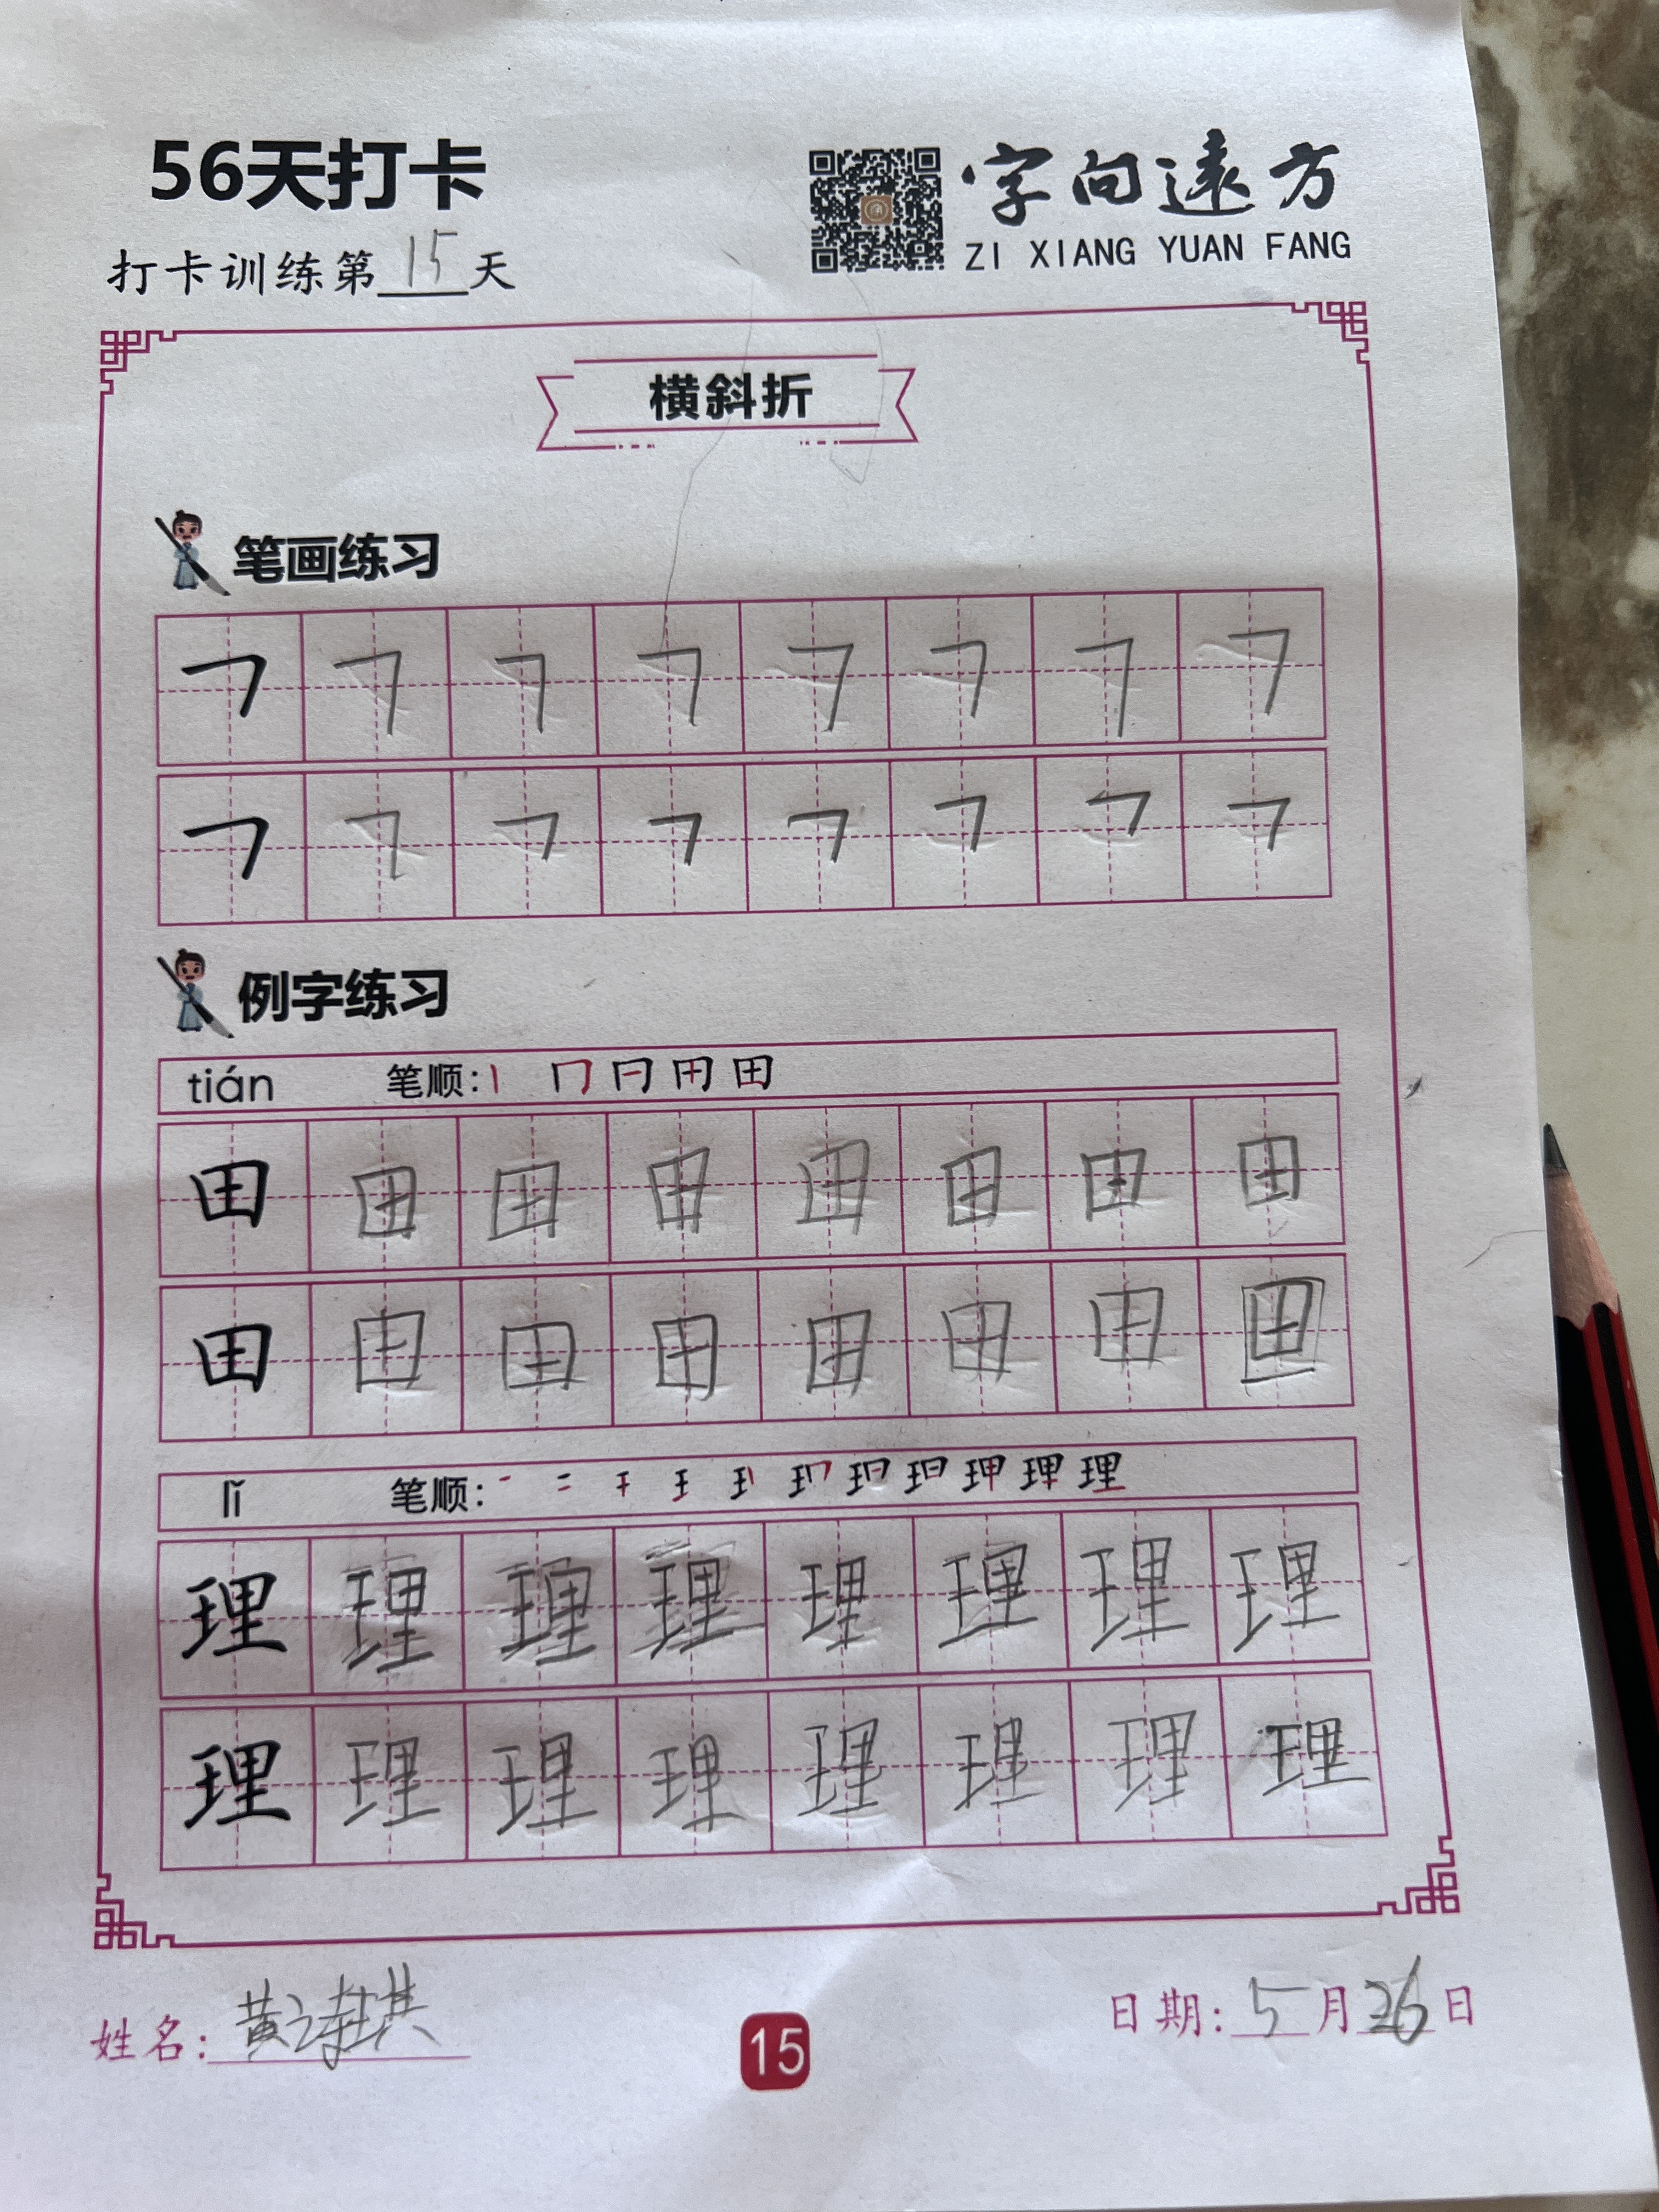 56天打卡
字向远方
ZI XIANG YUAN FANG
打卡训练第15天
横斜折
笔画练习
例字练习
tián 笔顺:
田 田 田 田 田 田 田 田
田 田 田 田 田 田 田 田
lǐ 笔顺:
理 理 理 理 理 理 理 理
理 理 理 理 理 理 理 理
姓名: 黄诗珙
15
日期: 5月26日